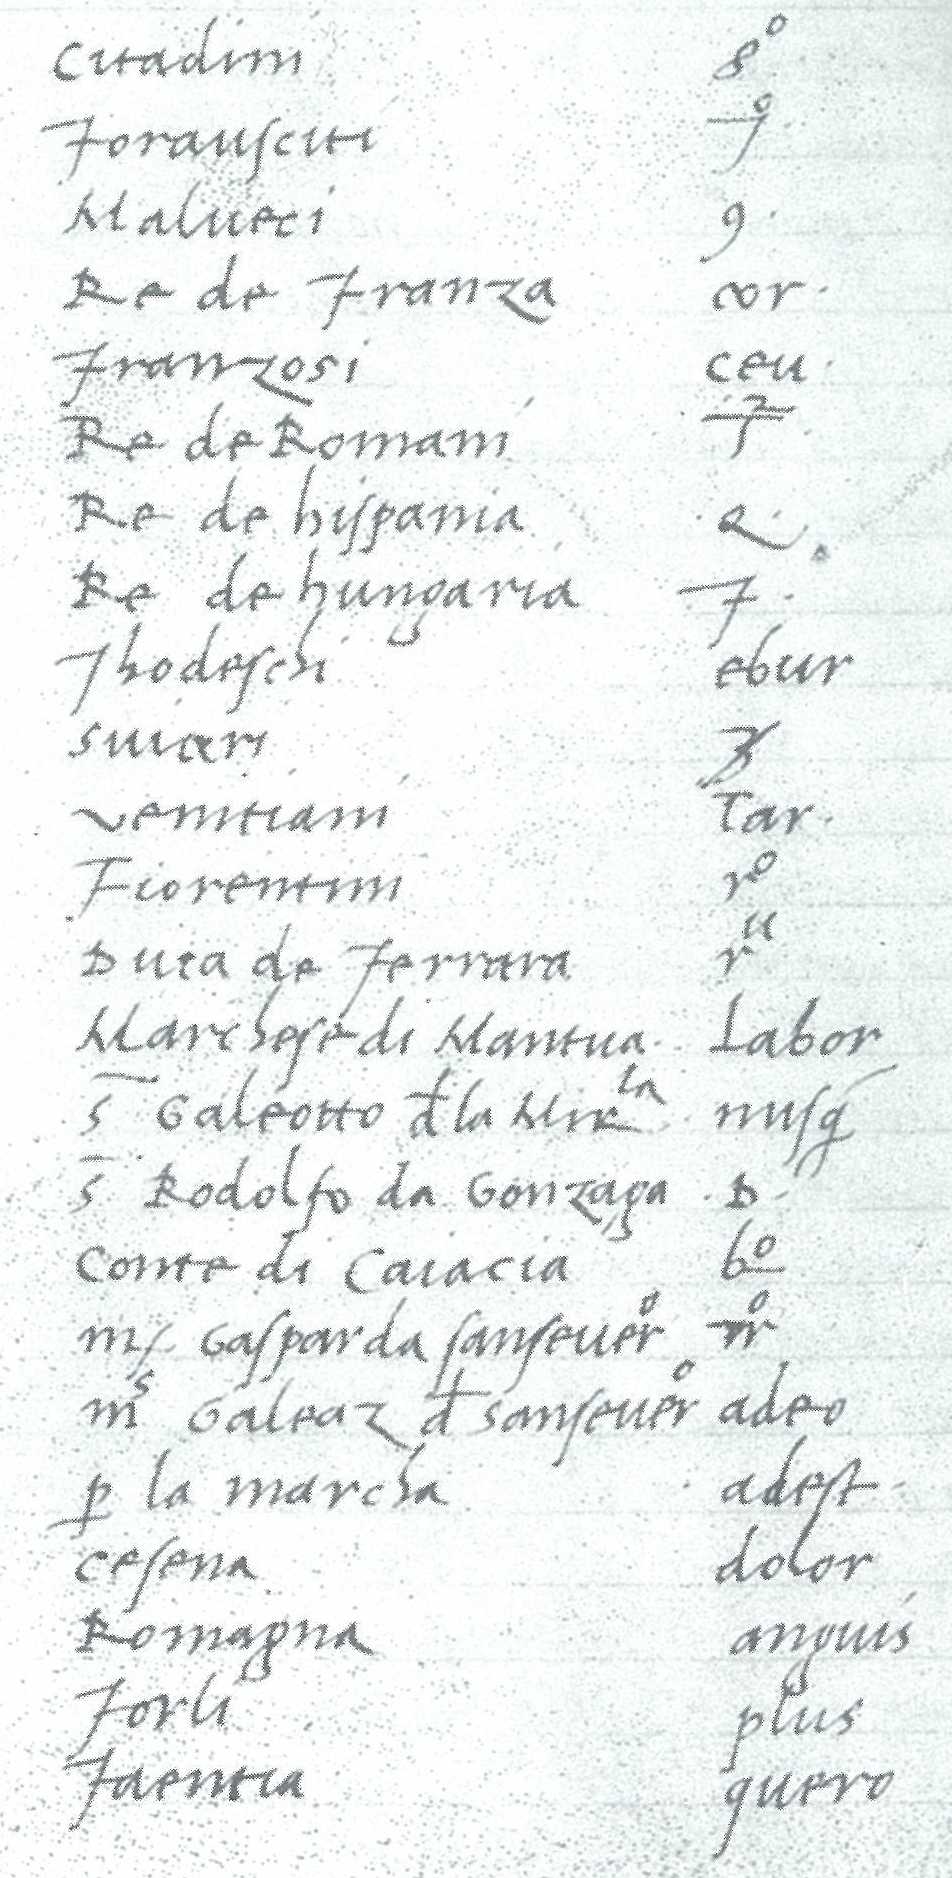 Citadini 8º
Forausciti
Malueci 9.
Re de Franza cor.
Franzosi ceu.
Re de Romani
Re de hispania
Re de hungaria
Thodeschi ebur
suiceri
venitiani Tar.
Fiorentini rº
Duca de Ferrara rᵘ
Marchese di Mantua Labor
s̄ Galeotto đ la Mirˡᵃ nusq
s̄ Rodolfo da Gonzaga D
Conte di Caiacia bº
ms Gaspar da sanseuerº
mˢ Galeaz đ sanseuerº adeo
p la marcha adest.
cesena dolor
Romagna anguis
Forli plus
Faentia quero